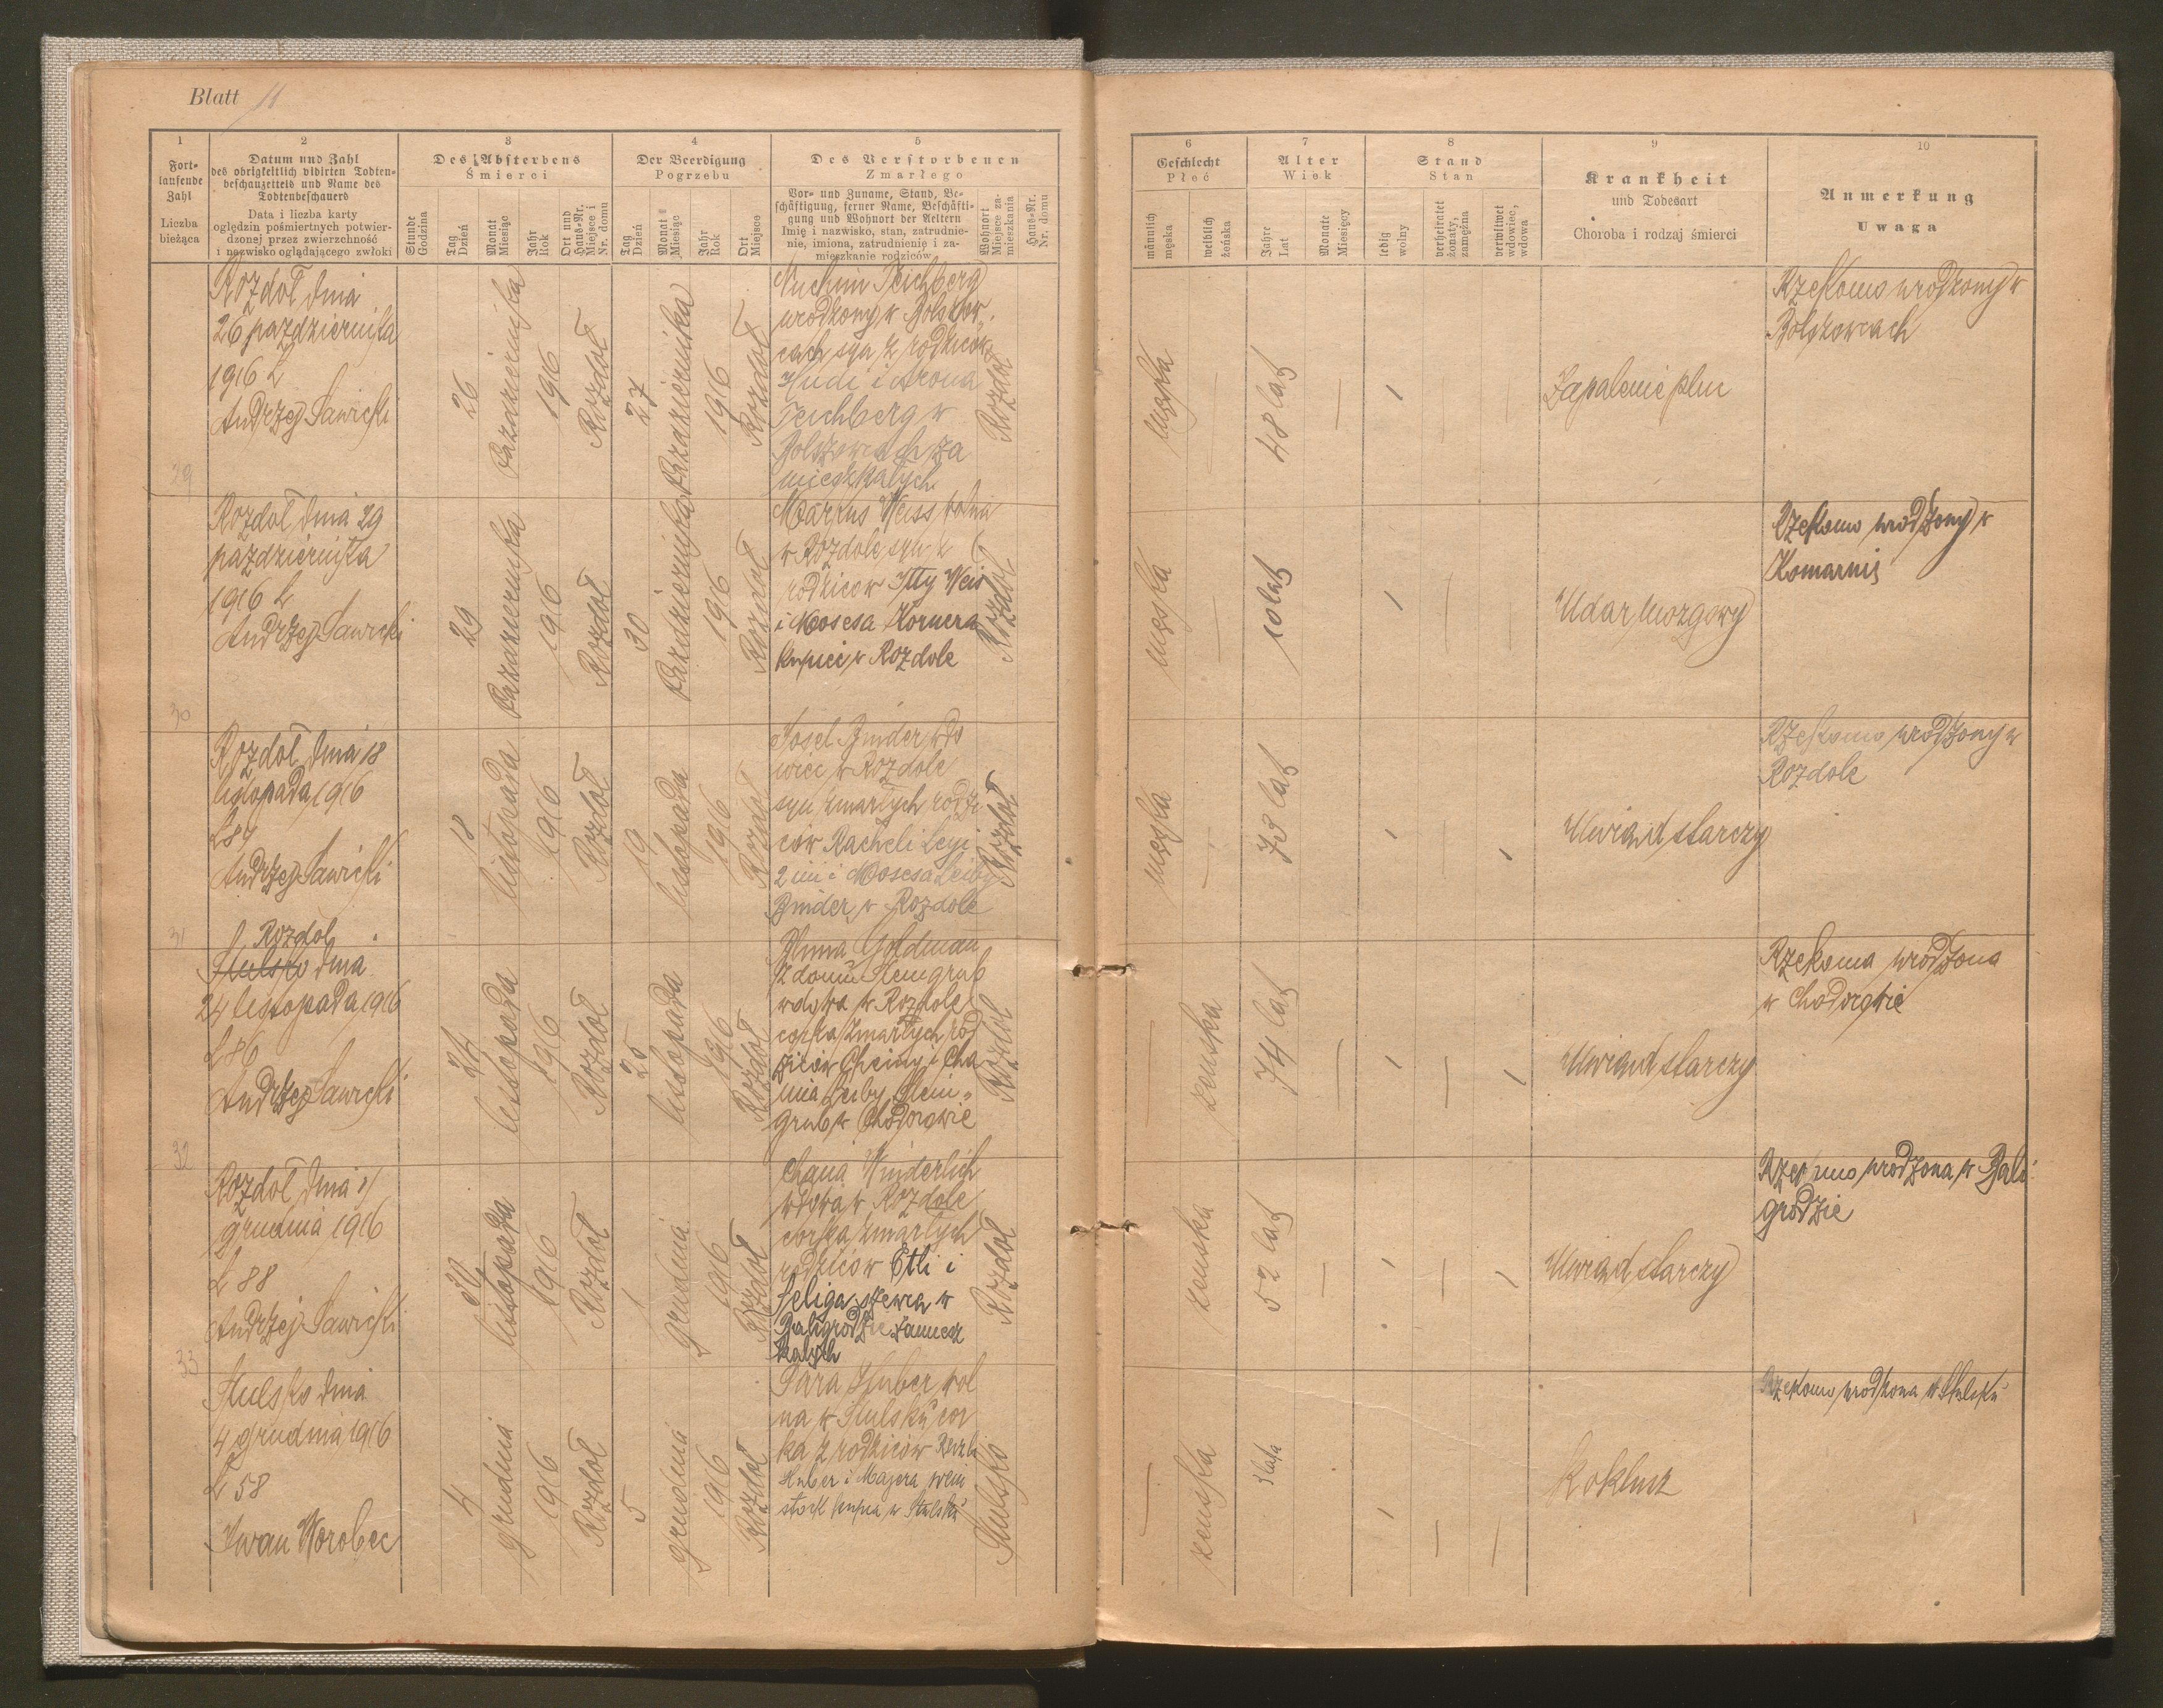 Blatt 11
1
Fort-
laufende
Zahl
Liczba
bieżąca
2
Datum und Zahl
des obrigkeitlich vidirten Todten-
beschauzettels und Name des
Todtenbeschauers
Data i liczba karty
oględzin pośmiertnych potwier-
dzonej przez zwierzchność
i nazwisko oglądającego zwłoki
3
Des Absterbens
Śmierci
Stunde
Godzina
Tag
Dzień
Monat
Miesiąc
Jahr
Rok
Ort und
Haus-Nr.
Miejsce i
Nr. domu
4
Der Beerdigung
Pogrzebu
Tag
Dzień
Monat
Miesiąc
Jahr
Rok
Ort
Miejsce
5
Des Verstorbenen
Zmarłego
Vor- und Zuname, Stand, Be-
schäftigung, ferner Name, Beschäfti-
gung und Wohnort der Aeltern
Imię i nazwisko, stan, zatrudnie-
nie, imiona, zatrudnienie i za-
mieszkanie rodziców
Wohnort
Miejsce za-
mieszkania
Haus-Nr.
Nr. domu
6
Geschlecht
Płeć
männlich
męska
weiblich
żeńska
7
Alter
Wiek
Jahre
Lat
Monate
Miesięcy
8
Stand
Stan
ledig
wolny
verheiratet
żonaty,
zamężna
verwitwet
wdowiec,
wdowa
9
Krankheit
und Todesart
Choroba i rodzaj śmierci
10
Anmerkung
Uwaga
29
Rozdoł dnia
26 pazdziernika
1916 L
Andrzej Sawicki
26
Pazdziernika
1916
Rozdoł
27
Pazdziernika
1916
Rozdoł
Nuchim Teichberg
urodzony w Bolszow,
cach syn z rodziców
Hudi i Arona
Teichberg w
Bolszowcach za
mieszkałych
Rozdoł
męska
48 lat
Zapalenie płuc
Rzekomo urodzony w
Bolszowcach
30
Rozdoł dnia 29
pazdziernika
1916 L
Andrzej Sawicki
29
Pazdziernika
1916
Rozdoł
30
Pazdziernika
1916
Rozdoł
Markus Weiss
w Rozdole syn z
rodzicow Itty Weis
i Mosesa Kornera
kupiec w Rozdole
Rozdoł
męska
10 lat
Udar mozgowy
Rzekomo urodzony w
31
Rozdoł dnia 18
listopada 1916
Andrzej Sawicki
18
listopada
1916
Rozdoł
19
listopada
1916
Rozdoł
Josel Binder wdo
wiec w Rozdole
syn zmarłych rodzi
ców Racheli Leji
2 im i Mosesa Leiby
Binder w Rozdole
Rozdoł
męska
78 lat
Uwiąd starczy
Rzekomo urodzony w
Rozdole
32
Rozdol
Stulsko dnia
24 listopada 1916
L 86
Andrzej Sawicki
24
listopada
1916
Rozdoł
25
listopada
1916
Rozdoł
Bluma Goldman
z domu Steingrub
wdowa w Rozdole
corka zmarłych rod
ziców Cheimy i Cha
ima Leiby Stein-
grub w Chodorowie
Rozdoł
zenska
74 lat
Uwiąd starczy
Rzekoma urodzona
w Chodorowie
33
Rozdoł dnia 1/
grudnia 1916
L 88
Andrzej Sawicki
30
listopada
1916
Rozdoł
1
grudnia
1916
Rozdoł
Chana Winderlich
wdowa w Rozdole
corka zmarłych
rodziców Etli i
Seliga szewca w
Baligrodzie zamiesz
kałych
Rozdoł
zenska
52 lat
Uwiąd starczy
urodzona w Bali
grodzie
Stulsko dnia
4 grudnia 1916
L 58
Iwan Worobec
4
grudnia
1916
Rozdoł
5
grudnia
1916
Rozdoł
Sara Huber wol
na w Stulsku cor
ka z rodziców
Huber i Majera Wein
stock kupca w Stulsku
Stulsko
zenska
3 lata
Koklusz
Rzekomo urodzona w Stulsku